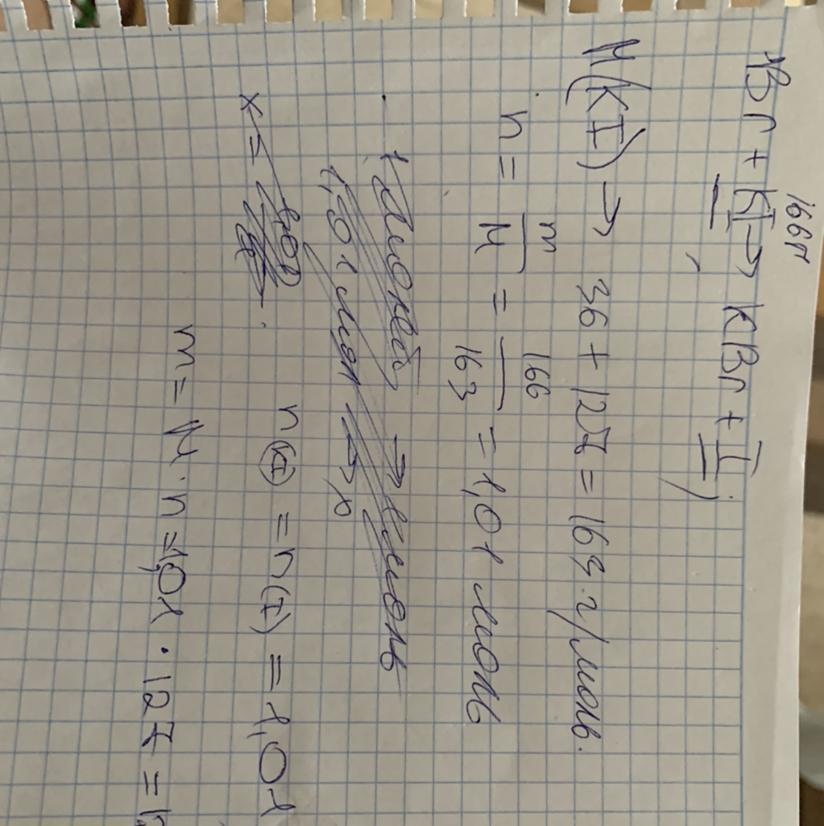 166г
Br + KI → KBr + I
M(KI) → 36 + 127 = 163 г/моль.
n = m/M = 166/163 = 1,01 моль
1 моль → 1 моль
1,01 мол → x
x = 1,01
n(KI) = n(I) = 1,01
m = M · n = 1,01 · 127 = 1